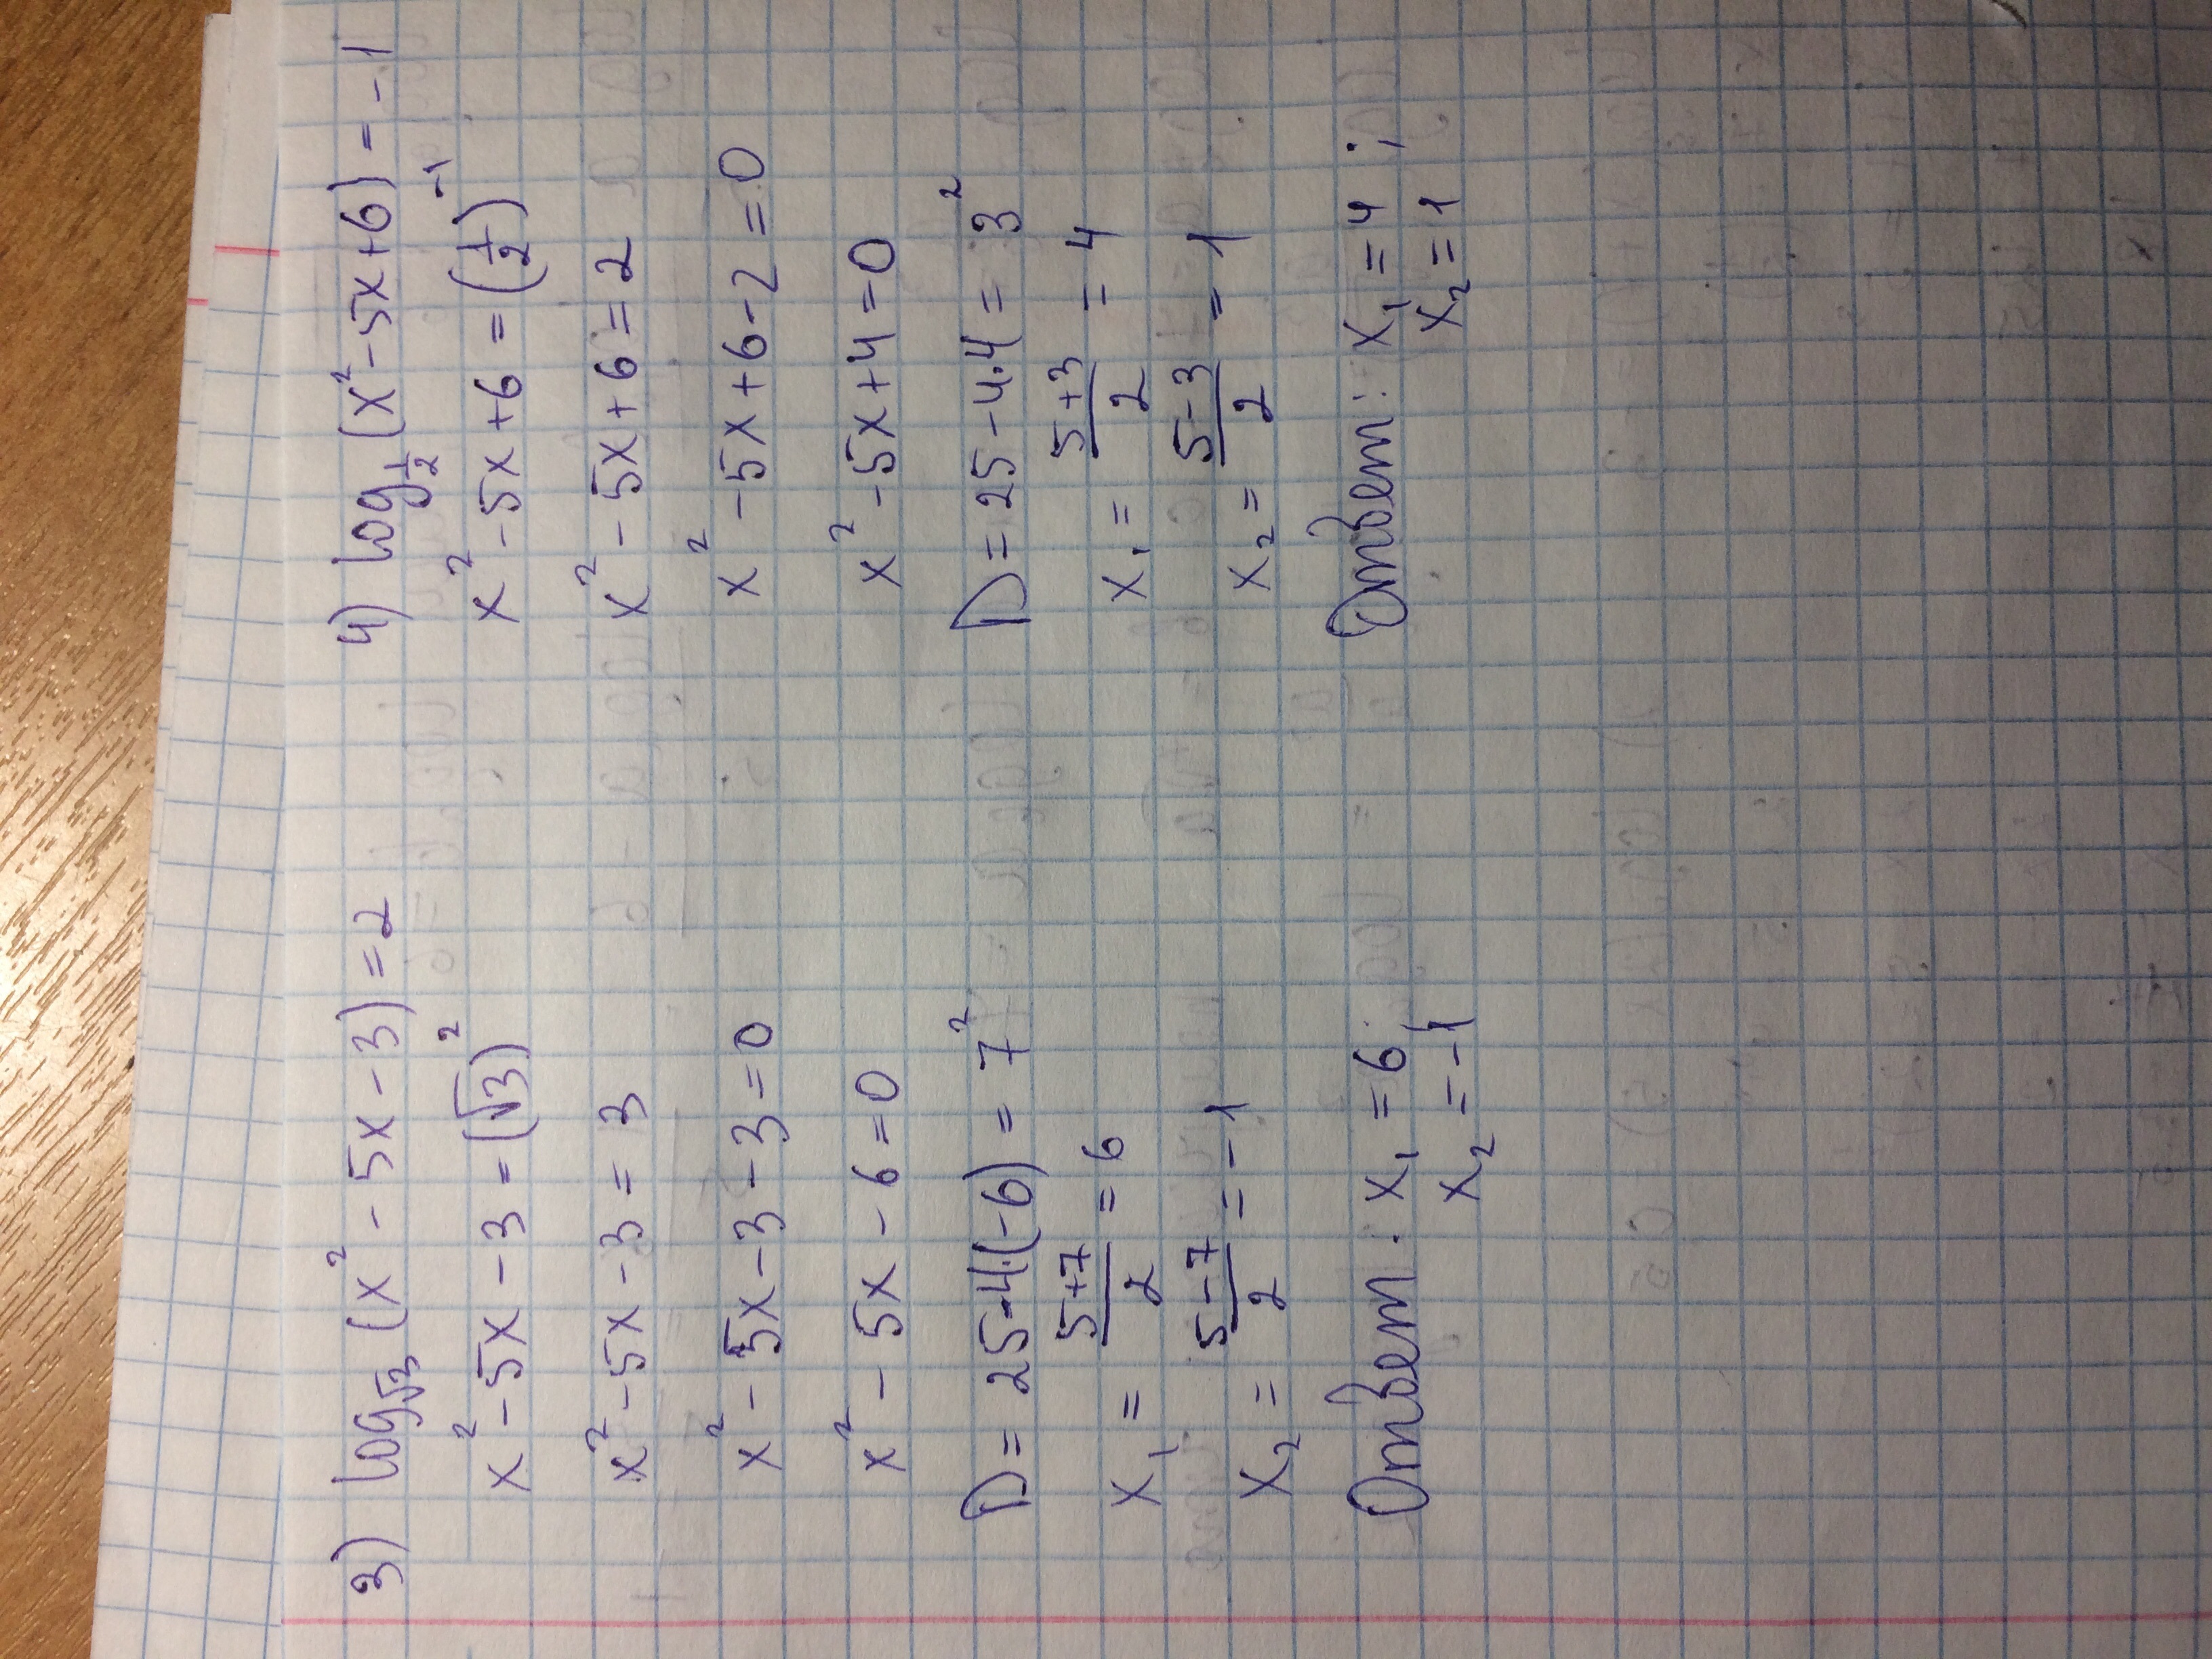 3) log√3 (x² - 5x - 3) = 2
x² - 5x - 3 = (√3)²
x² - 5x - 3 = 3
x² - 5x - 3 - 3 = 0
x² - 5x - 6 = 0
D = 25-4·(-6) = 7²
x₁ = (5+7)/2 = 6
x₂ = (5-7)/2 = -1
Ответ: x₁ = 6;
x₂ = -1
4) log1/2 (x² - 5x + 6) = -1
x² - 5x + 6 = (1/2)⁻¹
x² - 5x + 6 = 2
x² - 5x + 6 - 2 = 0
x² - 5x + 4 = 0
D = 25 - 4·4 = 3²
x₁ = (5+3)/2 = 4
x₂ = (5-3)/2 = 1
Ответ: x₁ = 4;
x₂ = 1